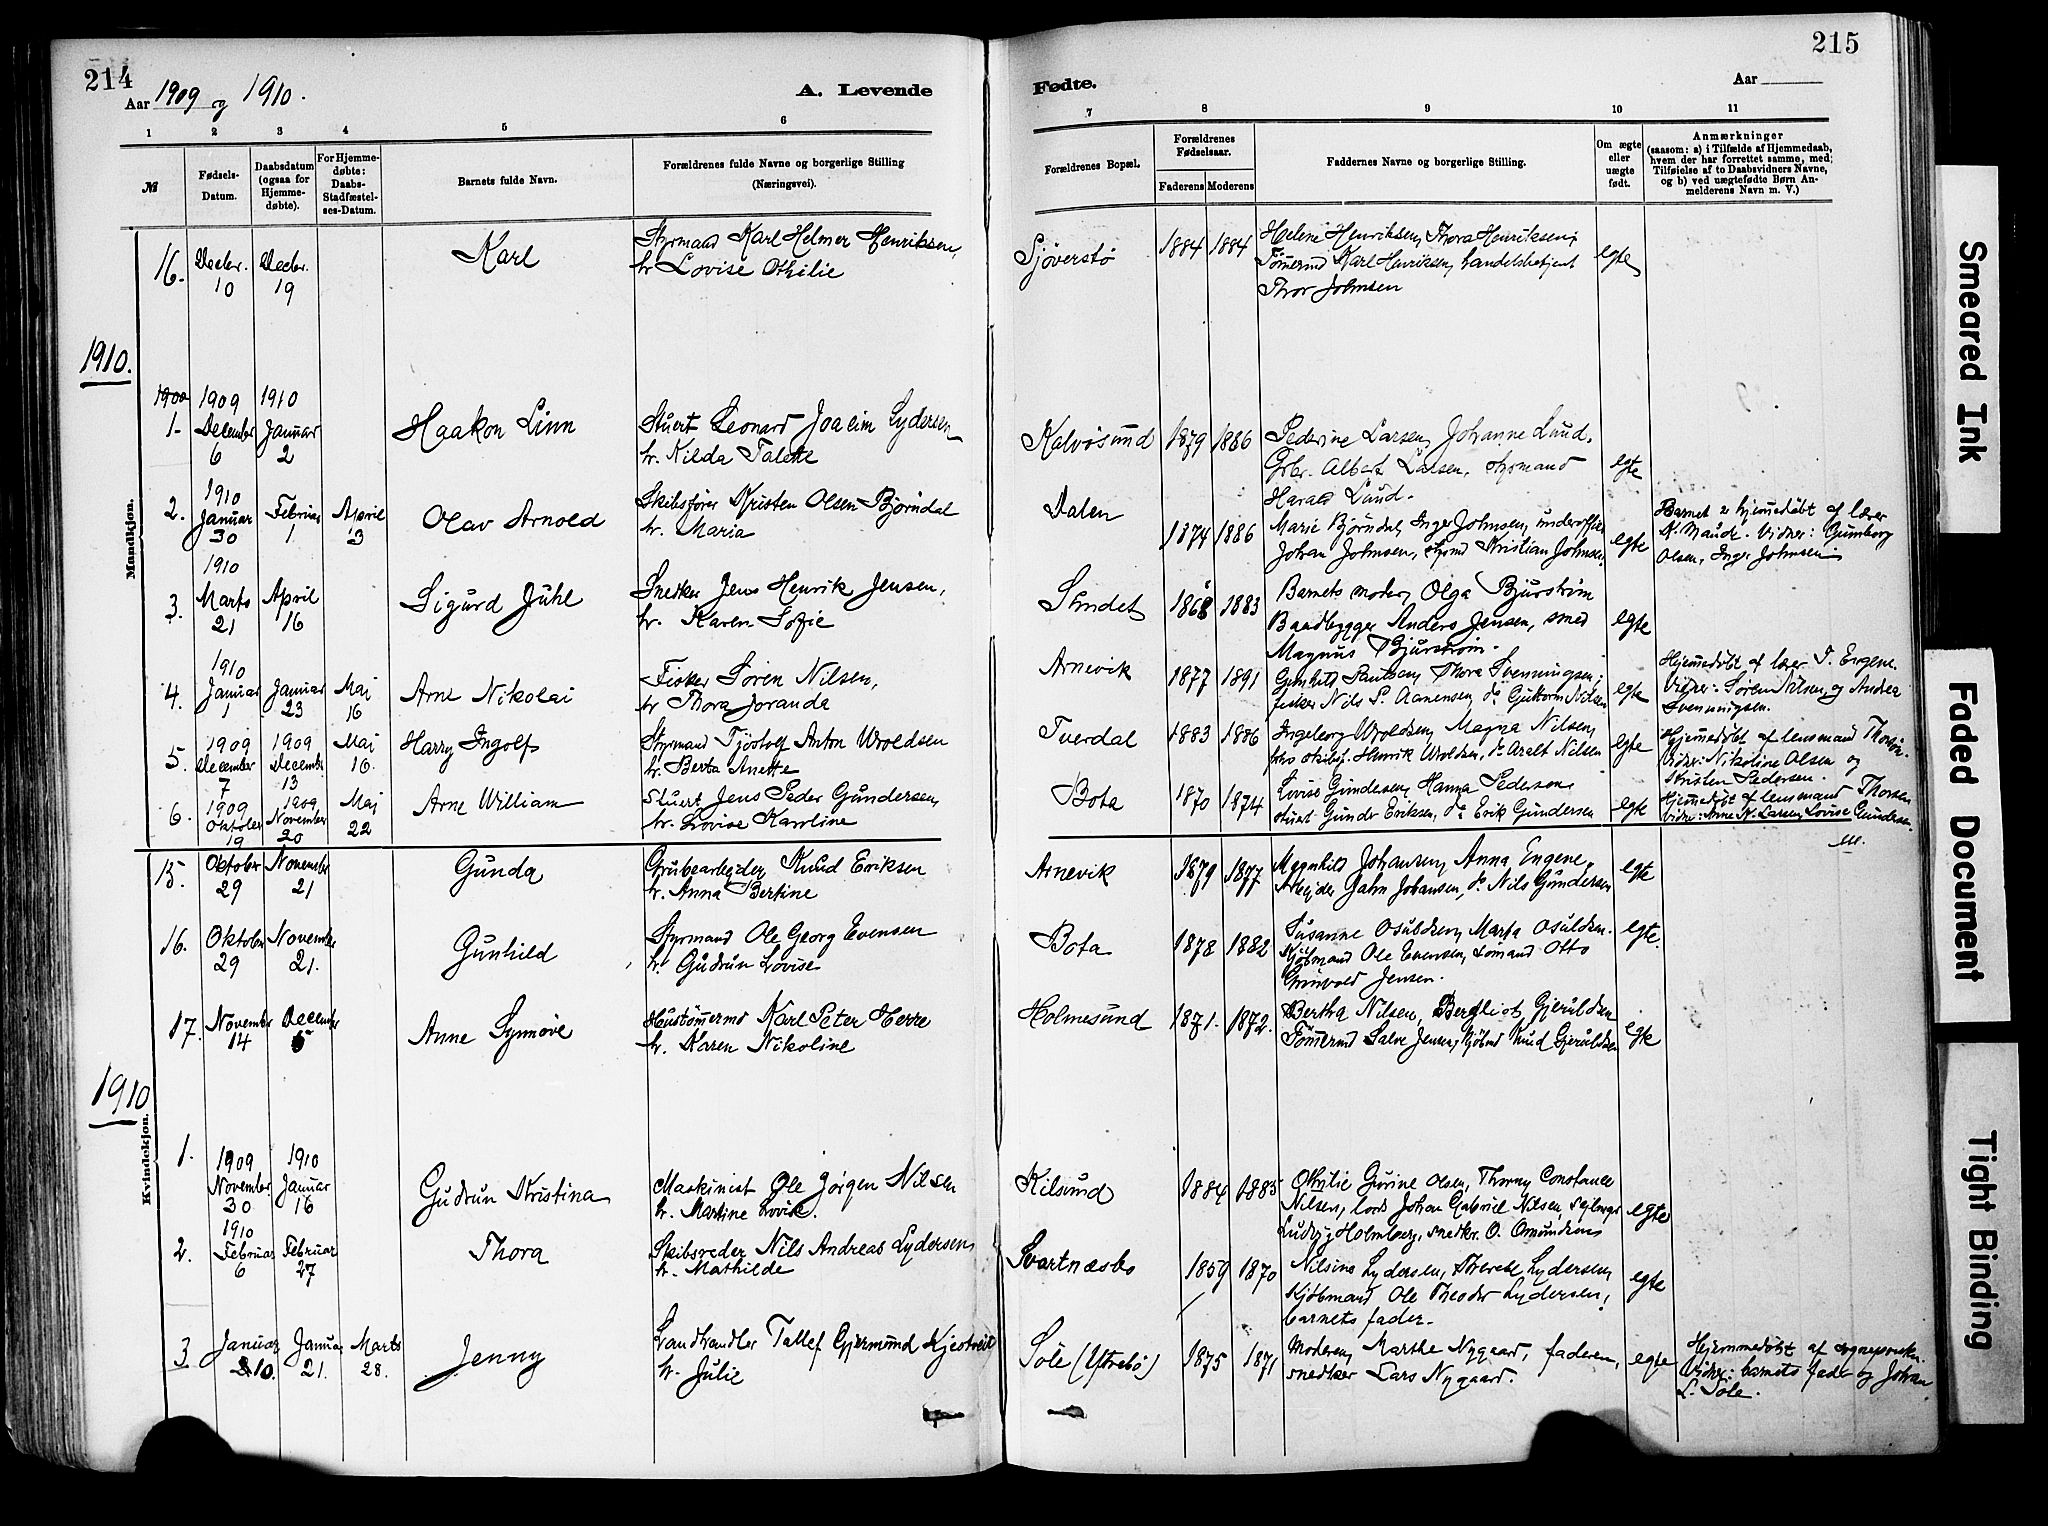 214
Aar 1909 og 1910.
A. Levende
1 2 3 4 5 6
№
Fødsels-
Datum.
Daabsdatum
(ogsaa for
Hjemme-
døbte).
For Hjemme-
døbte:
Daabs-
Stadfæstel-
ses-Datum.
Barnets fulde Navn.
Forældrenes fulde Navne og borgerlige Stilling
(Næringsvei).
215
Fødte.
Aar
7 8 9 10 11
Forældrenes Bopæl.
Forældrenes
Fødselsaar.
Faderens Moderens
Faddernes Navne og borgerlige Stilling.
Om ægte
eller
uægte
født.
Anmærkninger
(saasom: a) i Tilfælde af Hjemmedaab,
hvem der har forrettet samme, med
Tilføielse af to Daabsvidners Navne,
og b) ved uægtefødte Børn An-
melderens Navn m. V.)
Mandkjøn.
16. Decbr. 10 Decbr. 19 Karl
Styrmand Karl Helmer Henriksen,
h. Lovise Othilie
Sjøverstø 1884 1884
Helene Henriksen, Thora Henriksen,
Tømermd Karl Henriksen, handelsbetjent
Thor Johnsen
egte
1910.
1. 1909 December 6 1910 Januar 2 Haakon Linn
Stuert Leonard Joacim Lydersen
h. Kilda Talette
Kalvøsund 1879 1886
Pederine Larsen, Johanne Lund.
Grbr. Albert Larsen, styrmand
Harald Lund.
egte
2. 1910 Januar 30 Februar 1 April 3 Olav Arnold
Skibsfører Kristen Olsen Bjørndal
h. Maria
Dalen 1874 1886
Marie Bjørndal, Inger Johnsen, underoffic
Johan Johnsen, Kristian Johnsen
egte
Barnet er hjemmedøbt af lærer
K. Maude. Vidner: Gunborg
Olsen, Inger Johnsen
3. 1910 Marts 21 April 16 Sigurd Juhl
Snedker Jens Henrik Jensen,
h. Karen Sofie
1868 1883
Barnets moder, Olga Bjurstrøm
Baadbygger Anders Jensen, smed
Magnus Bjurstrøm.
egte
4. 1910 Januar 1 Januar 23 Maj 16 Arne Nikolai
Fisker Søren Nilsen,
h. Thora Joranda
Arnevik 1877 1891
Thora Svenningsen,
fisker Nils P. Aanensen, do Guttorm Nilsen
egte
Hjemmedøbt af lærer T. Engene.
Vidner: Søren Nilsen og Andrea
Svenningsen.
5. 1909 December 7 1909 December 13 Maj 16. Harry Ingolf
Styrmand Tjøstolf Anton Wroldsen
h. Berta Anette
Tverdal 1883 1886
Ingeborg Wroldsen, Magna Nilsen,
Henrik Wroldsen, do Aralt Nilsen
egte
Hjemmedøbt af lensmand Thorsen.
Vidner: Nikoline Olsen og
Kristen Pedersen.
6. 1909 Oktober 19 1909 November 20 Maj 22 Arne William
Stuert Jens Peder Gundersen,
h. Lovise Karoline
Bota 1870 1874
Lovise Gundersen, Hanna Pedersen
stuert Gunder Eriksen, do Erik Gundersen
egte
Hjemmedøbt af lensmand Thorsen
Vidner: Arne N. Larsen, Lovise Gundersen.
Kvindekjøn.
15. Oktober 29 November 21 Gunda
Grubearbejder Knud Eriksen
h. Anna Bertine
Arnevik 1879 1877
Magnhild Johansen, Anna Engene.
Arbejder Jahn Johansen, do Nils Gundersen
egte
16. Oktober 29 November 21. Gunhild
Styrmand Ole Georg Evensen
h. Gudrun Lovise
Bota 1878 1882
Susanne Osuldsen, Marta Osuldsen.
Kjøbmand Ole Evensen, sømand Otto
Grinvald Jensen.
egte.
17. November 14 December 5 Anne Synnøve
Hustømermd Karl Peter Herre
h. Karen Nikoline
Holmesund 1871. 1872.
Bertha Nilsen, Bergliot Gjeruldsen
Tømermd Salve Jensen, kjøbmd Knud Gjeruldsen
egte
1910
1. 1909 November 30 1910 Januar 16 Gudrun Kristina
Maskinist Ole Jørgen Nilsen
h. Martine Lovise.
Kilsund 1884 1885
Othylie Gurine Olsen, Thorny Constance
Nilsen, lods Johan Gabriel Nilsen,
Ludvig Holmberg, snedker. O. Omundsen
egte
2. 1910 Februar 6 Februar 27 Thora
Skibsreder Nils Andreas Lydersen,
h. Mathilde
Svartnæsbo 1859 1870
Nilsine Lydersen, Therese Lydersen,
Kjøbmand Ole Theodor Lydersen,
barnets fader.
egte
3 Januar 10. Januar 21. Marts 28. Jenny
Landhandler Tallef Gjermund Kjøstvedt
h. Julie
Sole (Ytrebø) 1875 1871
Moderen, Marthe Nygaard, faderen,
snedker Lars Nygaard.
egte
Hjemmedøbt af sogneprest.
Vidner: barnets fader og Johan
L. Sole.
Smeared Ink
Faded Document
Tight Binding